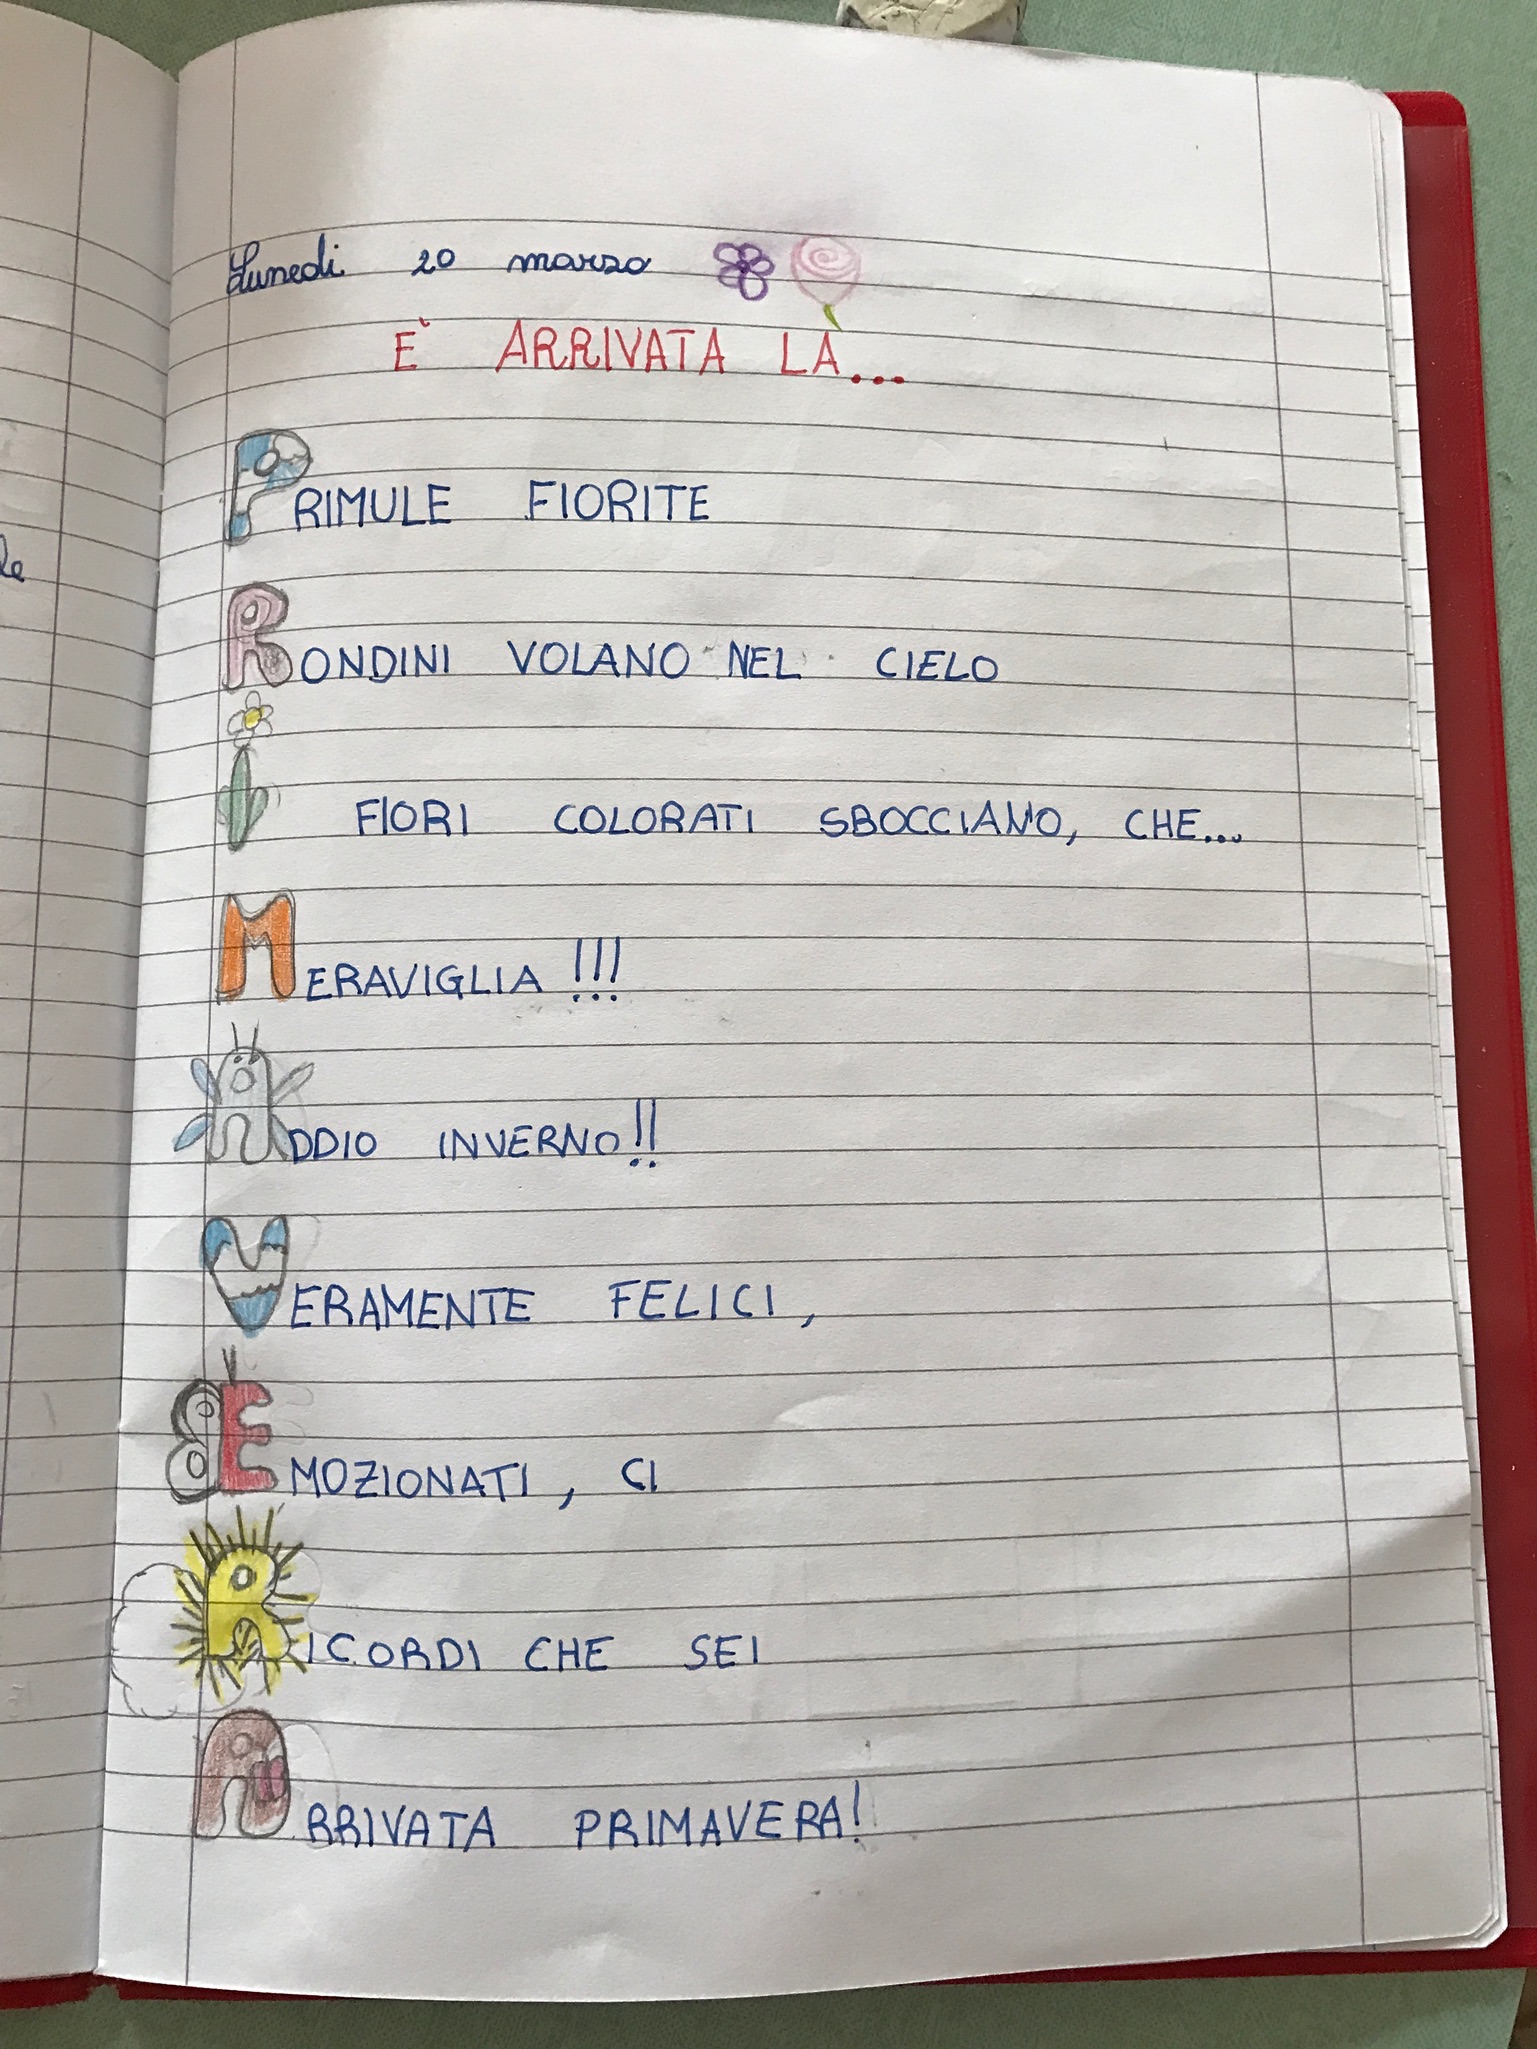 Lunedì 20 marzo
È ARRIVATA LA...
PRIMULE FIORITE
RONDINI VOLANO NEL CIELO
I FIORI COLORATI SBOCCIANO, CHE...
MERAVIGLIA!!!
ADDIO INVERNO!!
VERAMENTE FELICI,
EMOZIONATI, CI
RICORDI CHE SEI
ARRIVATA PRIMAVERA!